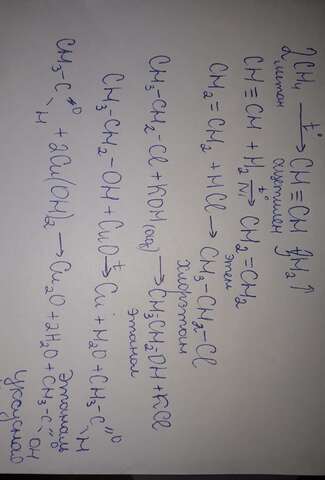 2CH₄ —t→ CH≡CH + 3H₂↑
метан ацетилен
CH≡CH + H₂ —t, Ni→ CH₂=CH₂
этен
CH₂=CH₂ + HCl → CH₃-CH₂-Cl
хлорэтан
CH₃-CH₂-Cl + KOH(водн) → CH₃CH₂OH + KCl
этанол
CH₃-CH₂-OH + CuO —t→ Cu + H₂O + CH₃-C(=O)H
этаналь
CH₃-C(=O)H + 2Cu(OH)₂ → Cu₂O + 2H₂O + CH₃-C(=O)OH
уксусная